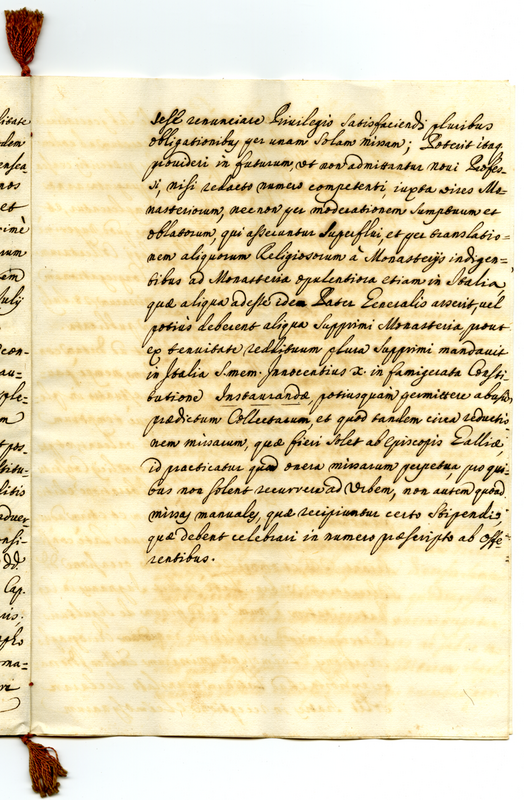 desse renunciare Privilegio satisfaciendi pluribus
obligationibus per unam solam missam; Poterit itaq.
provideri in futurum, ut non admittantur novi Profes-
si, nisi redacto numero competenti, iuxta vires Mo-
nasteriorum, nec non per moderationem sumptuum et
oblatorum, qui asseruntur superflui, et per translatio-
nem aliquorum Religiosorum à Monasterijs indigen-
tibus ad Monasteria opulentiora etiam in Italia
quæ aliqua idem Pater Generalis asserit, vel
potius deberent aliqua supprimi Monasteria, prout
ex tenuitate reddituum plura supprimi mandavit
in Italia S. mem. Innocentius X. in famigerata Consti-
tutione Instaurandæ, potiusquam permittere abusũ
prædictum Collectarum, et quod tandem circa reductio
nem missarum, quæ fieri solet ab Episcopis Galliæ,
id practicatur quod onera missarum perpetua, pro qui-
bus non solent recurrere ad Urbem, non autem quoad
missas manuales, quæ recipiuntur certo stipendio,
quæ debent celebrari in numero præscripto ab offe-
rentibus.